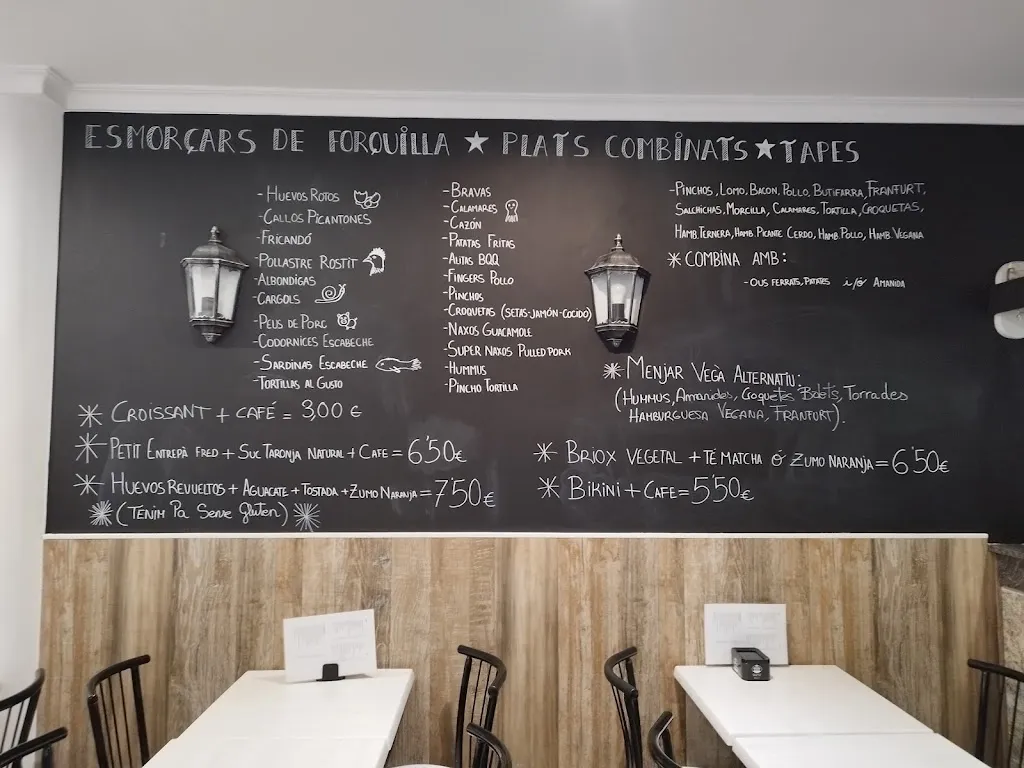 ESMORÇARS DE FORQUILLA ★ PLATS COMBINATS ★ TAPES
- HUEVOS ROTOS
- CALLOS PICANTONES
- FRICANDÓ
- POLLASTRE ROSTIT
- ALBONDIGAS
- CARGOLS
- PEUS DE PORC
- CODORNICES ESCABECHE
- SARDINAS ESCABECHE
- TORTILLAS AL GUSTO
- BRAVAS
- CALAMARES
- CAZÓN
- PATATAS FRITAS
- ALITAS BQQ
- FINGERS POLLO
- PINCHOS
- CROQUETAS (SETAS-JAMÓN-COCIDO)
- NAXOS GUACAMOLE
- SUPER NAXOS PULLED PORK
- HUMMUS
- PINCHO TORTILLA
- PINCHOS, LOMO, BACON, POLLO, BUTIFARRA, FRANFURT,
SALCHICHAS, MORCILLA, CALAMARES, TORTILLA, CROQUETAS,
HAMB. TERNERA, HAMB. PICANTE CERDO, HAMB. POLLO, HAMB. VEGANA
* COMBINA AMB:
- OUS FERRATS, PATATES i/ó AMANIDA
* MENJAR VEGÀ ALTERNATIU:
(HUMMUS, Amanides, Croquetes Bolets, Torrades
HAMBURGUESA VEGANA, FRANFURT).
* CROISSANT + CAFÉ = 3,00 €
* PETIT ENTREPÀ FRED + SUC TARONJA NATURAL + CAFE = 6'50€
* HUEVOS REVUELTOS + AGUACATE + TOSTADA + ZUMO NARANJA = 7'50€
* (TENIM Pa Sense Gluten) *
* BRIOX VEGETAL + TÉ MATCHA Ó ZUMO NARANJA = 6'50€
* BIKINI + CAFE = 5'50€